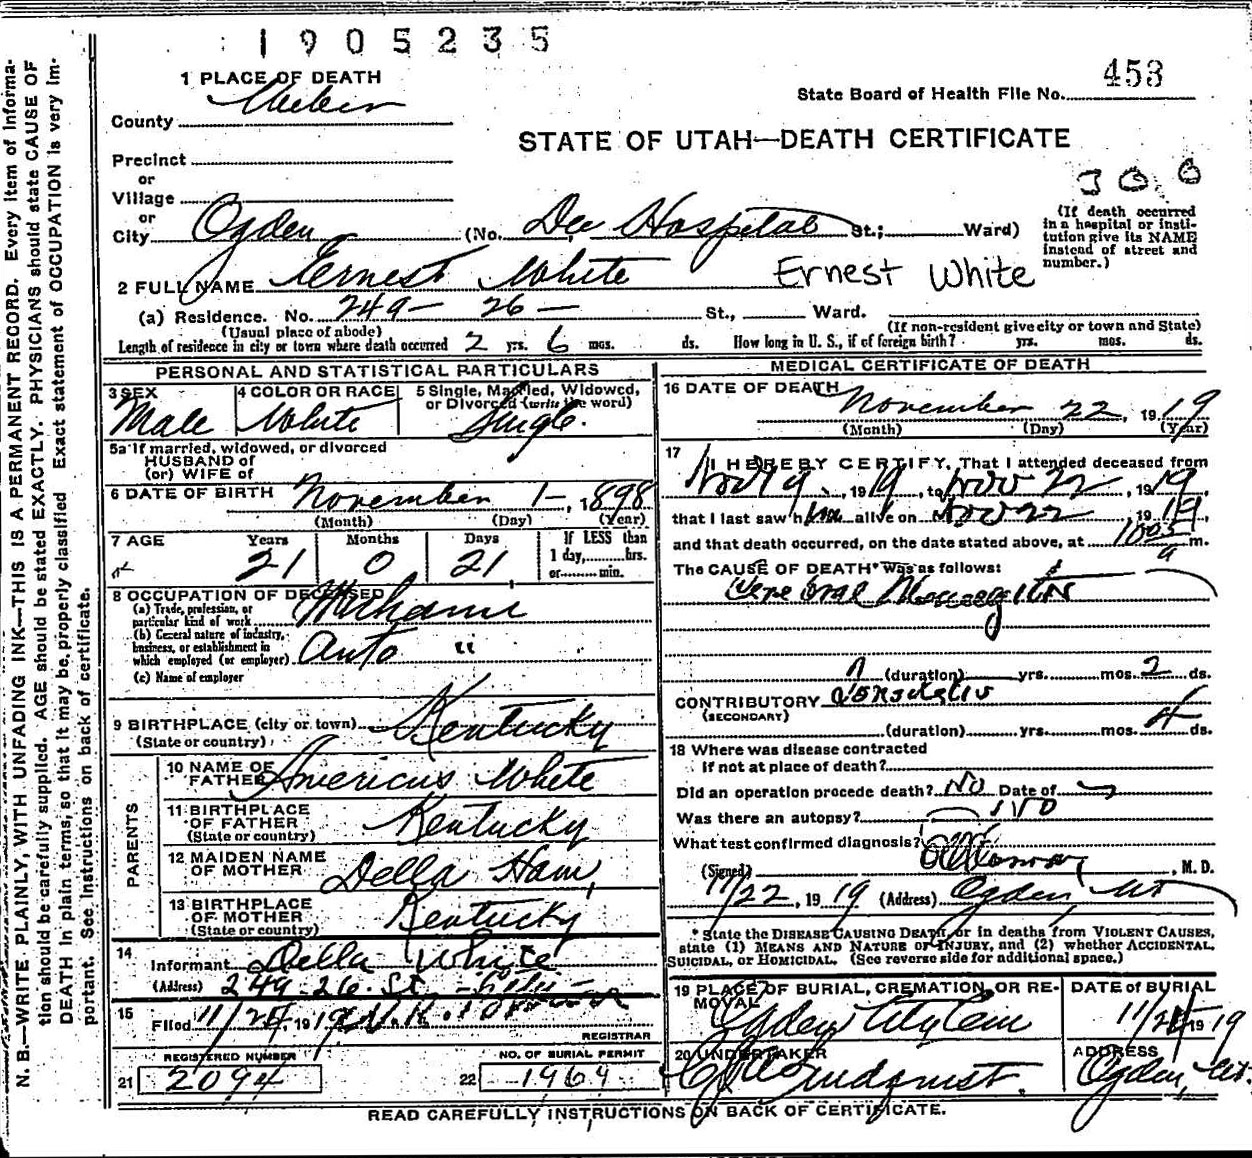 1905235
1 PLACE OF DEATH
453
State Board of Health File No.
County Weber
STATE OF UTAH—DEATH CERTIFICATE
Precinct
or
Village
or
City Ogden (No. Dee Hospital St.; Ward)
(If death occurred in a hospital or institution give its NAME instead of street and number.)
2 FULL NAME Ernest White Ernest White
(a) Residence. No. 249— 26— St., Ward.
(Usual place of abode) (If non-resident give city or town and State)
Length of residence in city or town where death occurred 2 yrs. 6 mos. ds. How long in U. S., if of foreign birth? yrs. mos. ds.
PERSONAL AND STATISTICAL PARTICULARS
3 SEX Male
4 COLOR OR RACE White
5 Single, Married, Widowed, or Divorced (write the word) Single.
5a If married, widowed, or divorced
HUSBAND of
(or) WIFE of
6 DATE OF BIRTH November 1—, 1898
(Month) (Day) (Year)
7 AGE Years Months Days If LESS than
21 0 21 1 day, hrs.
or min.
8 OCCUPATION OF DECEASED
(a) Trade, profession, or particular kind of work Mechanic
(b) General nature of industry, business, or establishment in which employed (or employer) Auto "
(c) Name of employer
9 BIRTHPLACE (city or town)
(State or country) Kentucky
PARENTS
10 NAME OF FATHER Americus White
11 BIRTHPLACE OF FATHER (State or country) Kentucky
12 MAIDEN NAME OF MOTHER Della Ham
13 BIRTHPLACE OF MOTHER (State or country) Kentucky
14 Informant Della White
(Address) 249-26. St. - City -
15 Filed 11/24, 1919
REGISTRAR
REGISTERED NUMBER NO. OF BURIAL PERMIT
21 2094 22 1969
MEDICAL CERTIFICATE OF DEATH
16 DATE OF DEATH November 22, 1919
(Month) (Day) (Year)
17 I HEREBY CERTIFY, That I attended deceased from
Nov 9, 1919, to Nov 22, 1919,
that I last saw him alive on Nov 22 1919,
and that death occurred, on the date stated above, at 1005 a m.
The CAUSE OF DEATH* was as follows:
Cerebral Meningitis
(duration) yrs. mos. 2 ds.
CONTRIBUTORY
(SECONDARY)
(duration) yrs. mos. 4 ds.
18 Where was disease contracted
if not at place of death?
Did an operation procede death? No Date of
Was there an autopsy? No
What test confirmed diagnosis?
(Signed) , M. D.
11/22, 1919 (Address) Ogden Ut
* State the DISEASE CAUSING DEATH, or in deaths from VIOLENT CAUSES, state (1) MEANS AND NATURE OF INJURY, and (2) whether ACCIDENTAL, SUICIDAL, or HOMICIDAL. (See reverse side for additional space.)
19 PLACE OF BURIAL, CREMATION, OR REMOVAL Ogden City Cem
DATE OF BURIAL 11/24 1919
20 UNDERTAKER Lindquist.
ADDRESS Ogden, Ut.
READ CAREFULLY INSTRUCTIONS ON BACK OF CERTIFICATE.
N. B.—WRITE PLAINLY, WITH UNFADING INK—THIS IS A PERMANENT RECORD. Every item of information should be carefully supplied. AGE should be stated EXACTLY. PHYSICIANS should state CAUSE OF DEATH in plain terms, so that it may be properly classified. Exact statement of OCCUPATION is very important. See instructions on back of certificate.